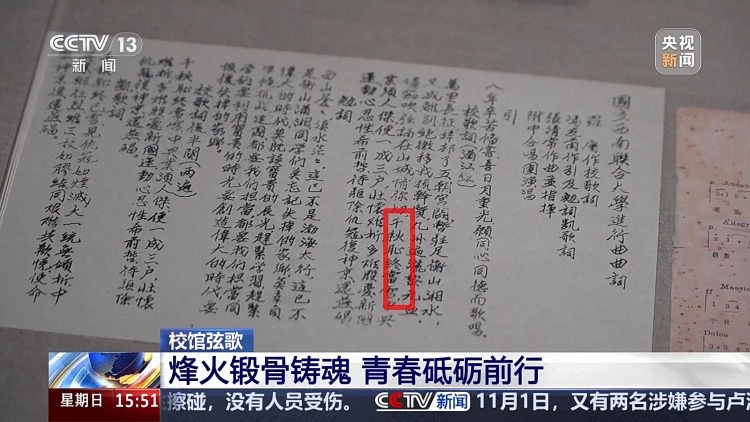 CCTV 13
新闻
央视
新闻
國立西南聯合大學進行曲曲詞
羅庸作校歌詞
馮友蘭作引及勉詞凱歌詞
張清常作曲並指揮
附中合唱團演唱
引
八年辛苦備嘗喜日月重光願同心同德而歌唱
校歌詞（滿江紅）
萬里長征辭却了五朝宮闕暫駐足衡山湘水，
又成離別絕徼移栽楨幹質九州遍灑黎元血
儘笳吹弦誦在山城情彌切千秋恥終當雪中興
業須人傑便一成三戶壯懷難折多難殷憂新國
運動心忍性希前哲待驅除仇寇復神京還燕碣。
勉詞
西山蒼蒼滇水茫茫，這已不是渤海太行，這已不
是衡岳瀟湘同學們莫忘記失掉的家鄉莫辜負
偉大的時代莫耽誤寶貴的辰光趕緊學習趕緊
準備抗戰建國都要我們擔當都要我們擔當同
學們要利用寶貴的時光要創造偉大的時代，要
恢復失掉的家鄉。
校歌詞後半闋（兩遍）
千秋恥終當雪中興業須人傑便一成三戶，壯懷
凱歌詞
校馆弦歌
烽火锻骨铸魂 青春砥砺前行
星期日 15:51 擦碰，没有人员受伤。 CCTV新闻 11月1日，又有两名涉嫌参与卢